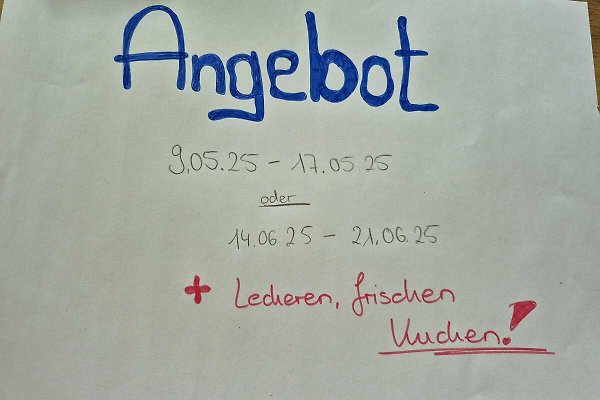 Angebot
9.05.25 - 17.05.25
oder
14.06.25 - 21.06.25
+ Leckeren, frischen
Kuchen!